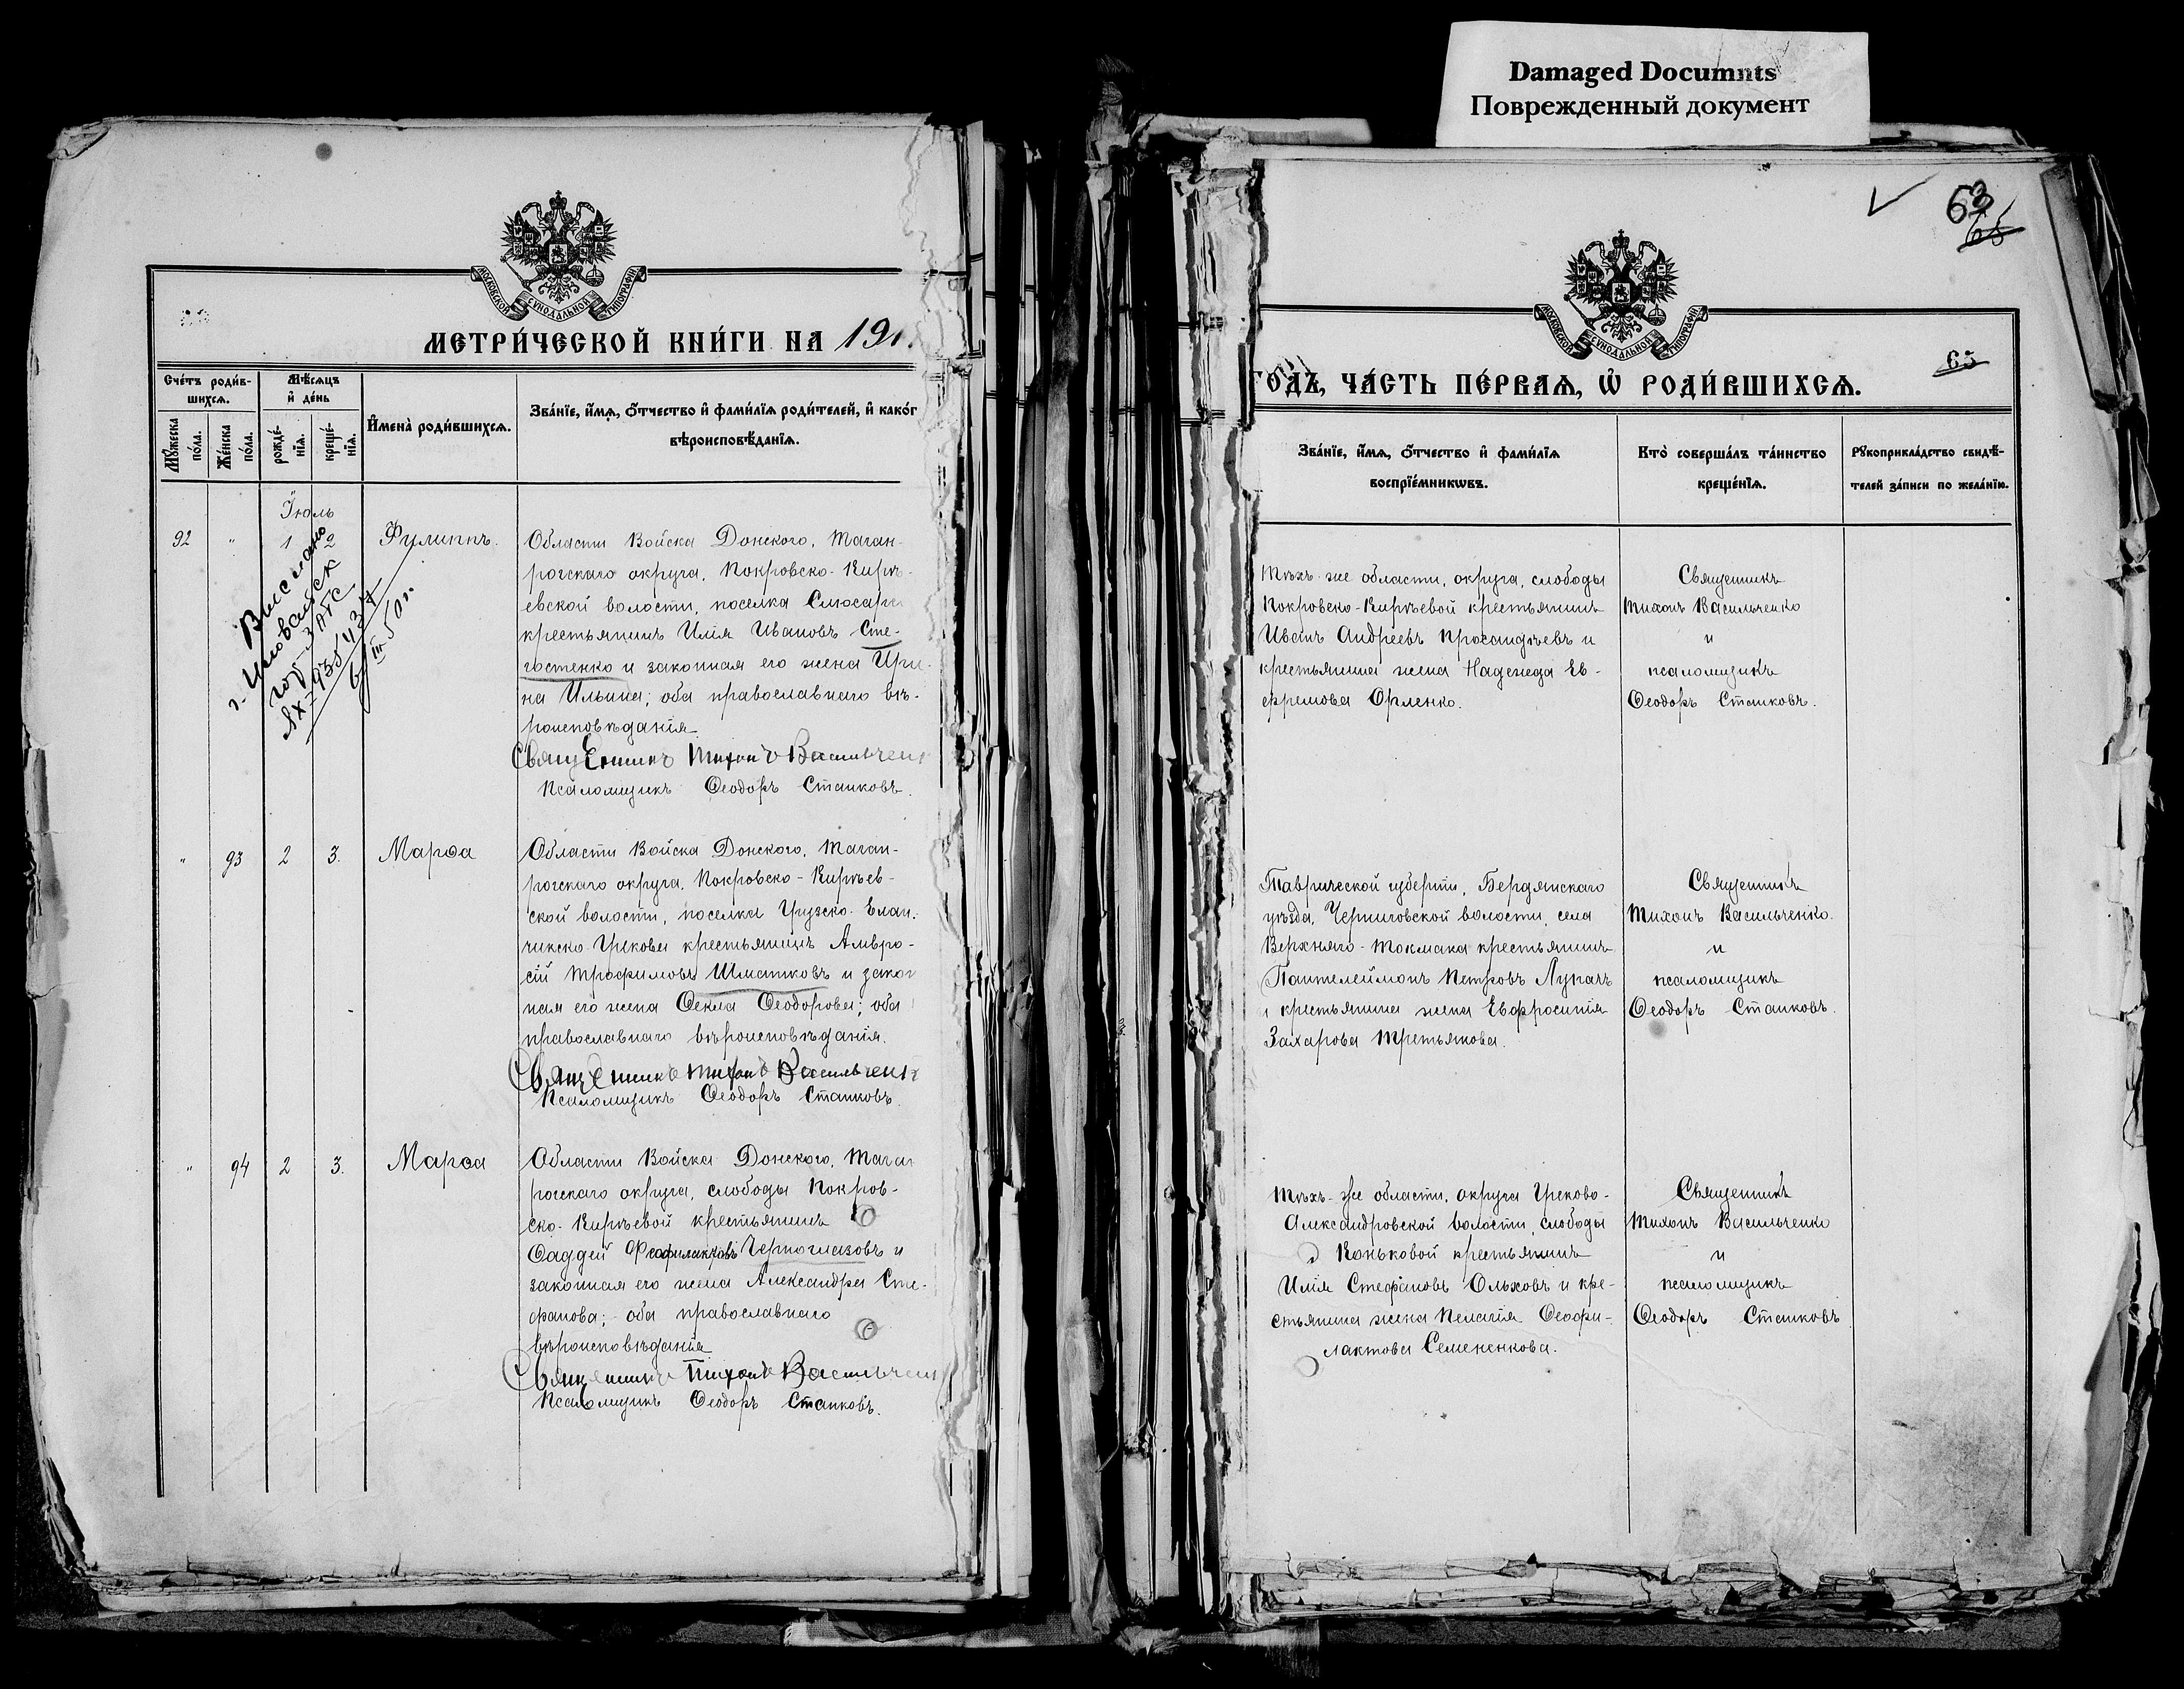 Damaged Documnts
Поврежденный документ
МОСКОВСКОЙ СѴНОДАЛЬНОЙ ТИПОГРАФІИ
МЕТРИ́ЧЕСКОЙ КНИ́ГИ НА 191
Сче́тъ роди́в-
шихсѧ.
Мѣ́сѧцъ
и҆ де́нь
И҆мена̀ роди́вшихсѧ.
Зва́нїе, и҆́мѧ, ѻ҆́тчество и҆ фами́лїѧ роди́телей, и҆ како́г
вѣроисповѣ́данїѧ.
Мꙋ́жеска по́ла.
Же́нска по́ла.
рожде́-
нїѧ.
креще́-
нїѧ.
Іюль
92 " 1 2 Филиппъ.
Области Войска Донского, Таган-
рогскаго округа, Покровско-Киръ-
евской волости, поселка Слюсар
крестьянинъ Илія Ивановъ Сте-
гостенко и законная его жена Ири-
на Ильина; оба православнаго вѣ-
роисповѣданія.
Священникъ Тихонъ Васильчен
Псаломщикъ Ѳеодоръ Станковъ.
Выслано
" 93 2 3. Марѳа
Области Войска Донского, Таган-
рогскаго округа, Покровско-Киръев-
ской волости, поселка Грузско-Елан-
чикско-Грекова крестьянинъ Амвро-
сій Трофимовъ Шматковъ и закон
ная его жена Ѳекла Ѳеодорова; оба
православнаго вѣроисповѣданія.
Священникъ Тихонъ Васильченк
Псаломщикъ Ѳеодоръ Станковъ.
" 94 2 3. Марѳа
Области Войска Донского, Таган
рогскаго округа, слободы Покров-
ско-Киръевой крестьянинъ
Ѳаддей Феофилактовъ Черноглазовъ и
законная его жена Александра Сте-
фанова; оба православнаго
вѣроисповѣданія
Священникъ Тихонъ Васильчен
Псаломщикъ Ѳеодоръ Станковъ.
63
65
МОСКОВСКОЙ СѴНОДАЛЬНОЙ ТИПОГРАФІИ
65
ГОДЪ, ЧА́СТЬ ПЕ́РВАѦ, Ѡ҆ РОДИ́ВШИХСѦ.
Зва́нїе, и҆́мѧ, ѻ҆́тчество и҆ фами́лїѧ
воспрїе́мникѡвъ.
Кто̀ соверша́лъ та́инство
креще́нїѧ.
Рꙋкоприкла́дство свидѣ́-
телей за́писи по жела́нїю.
Тѣхъ-же области, округа, слободы
Покровско-Киръевой крестьянинъ
Иванъ Андреевъ Просандѣевъ и
крестьянина жена Надежда Ев-
фремова Орленко.
Священникъ
Тихонъ Васильченко
и
псаломщикъ
Ѳеодоръ Станковъ.
Таврической губерніи, Бердянскаго
уѣзда, Черниговской волости, села
Верхняго-Токмака крестьянинъ
Пантелеймонъ Петровъ Лупачъ
и крестьянина жена Евфросинія
Захарова Третьякова.
Священникъ
Тихонъ Васильченко.
и
псаломщикъ
Ѳеодоръ Станковъ.
Тѣхъ-же области, округа Греково-
Александровской волости, слободы
Коньковой крестьянинъ
Илія Стефановъ Ольховъ и кре-
стьянина жена Пелагія Ѳеофи-
лактова Семененкова.
Священникъ
Тихонъ Васильченко
и
псаломщикъ
Ѳеодоръ Станковъ